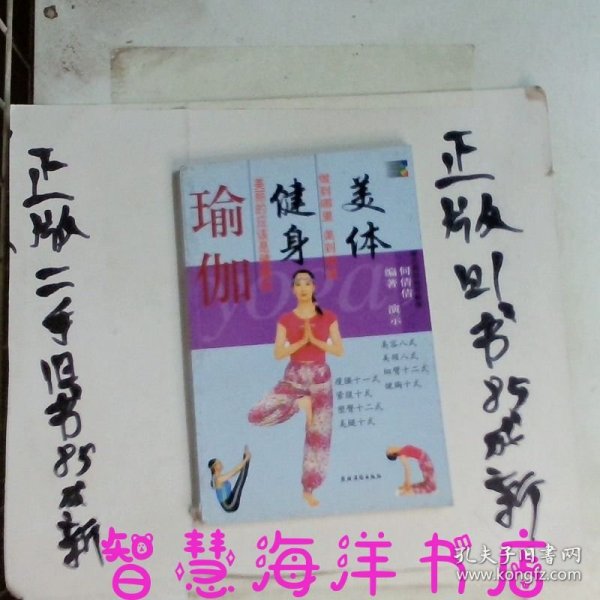 正版二手旧书85成新
美体
做到哪里 美到哪里
健身
瑜伽
yoga
何倩倩
编著 演示
美容八式
美颈八式
细臂十二式
健胸十式
瘦腰十一式
紧腹十式
塑臀十二式
美腿十式
正版旧书85成新
智慧海洋书店
孔夫子旧书网
www.kongfz.com